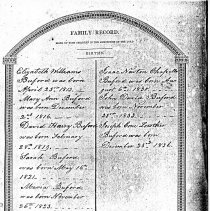 FAMILY RECORD.
BIRTHS.
Elizabeth Williams
Buford was born
April 25th 1812.
Mary Ann Buford
was born December
2nd 1816.
David Henry Buford
was born February
28th 1819.
Sarah Buford
was born May 16th
1821.
Marcia Buford
was born November
26th 1823.
Isaac Newton Chapelle
Buford was born Au-
gust 6th 1831.
John David Buford
was born November
25th 1833.
Joseph Lowther
Buford was born
December 28th 1836.